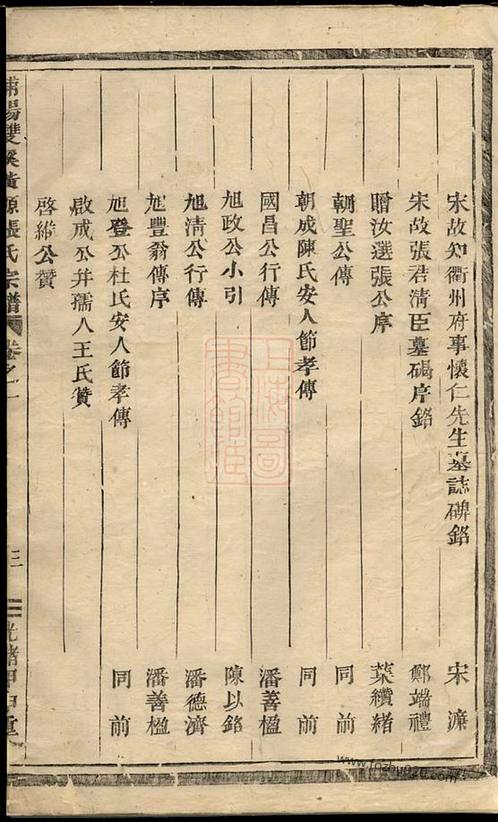 宋故知衢州府事懷仁先生墓誌碑銘 宋濂
宋故張君清臣墓碣序銘 鄭端禮
贈汝選張公序 葉纘緒
朝聖公傳 同前
朝成陳氏安人節孝傳 同前
國昌公行傳 潘善楹
旭政公小引 陳以銘
旭清公行傳 潘德濟
旭豐翁傳序 潘善楹
旭登公杜氏安人節孝傳 同前
啟成公并孺人王氏贊
啓緒公贊
浦陽雙溪黃源張氏宗譜 卷之一 三 光緒甲申重
上海圖書館藏